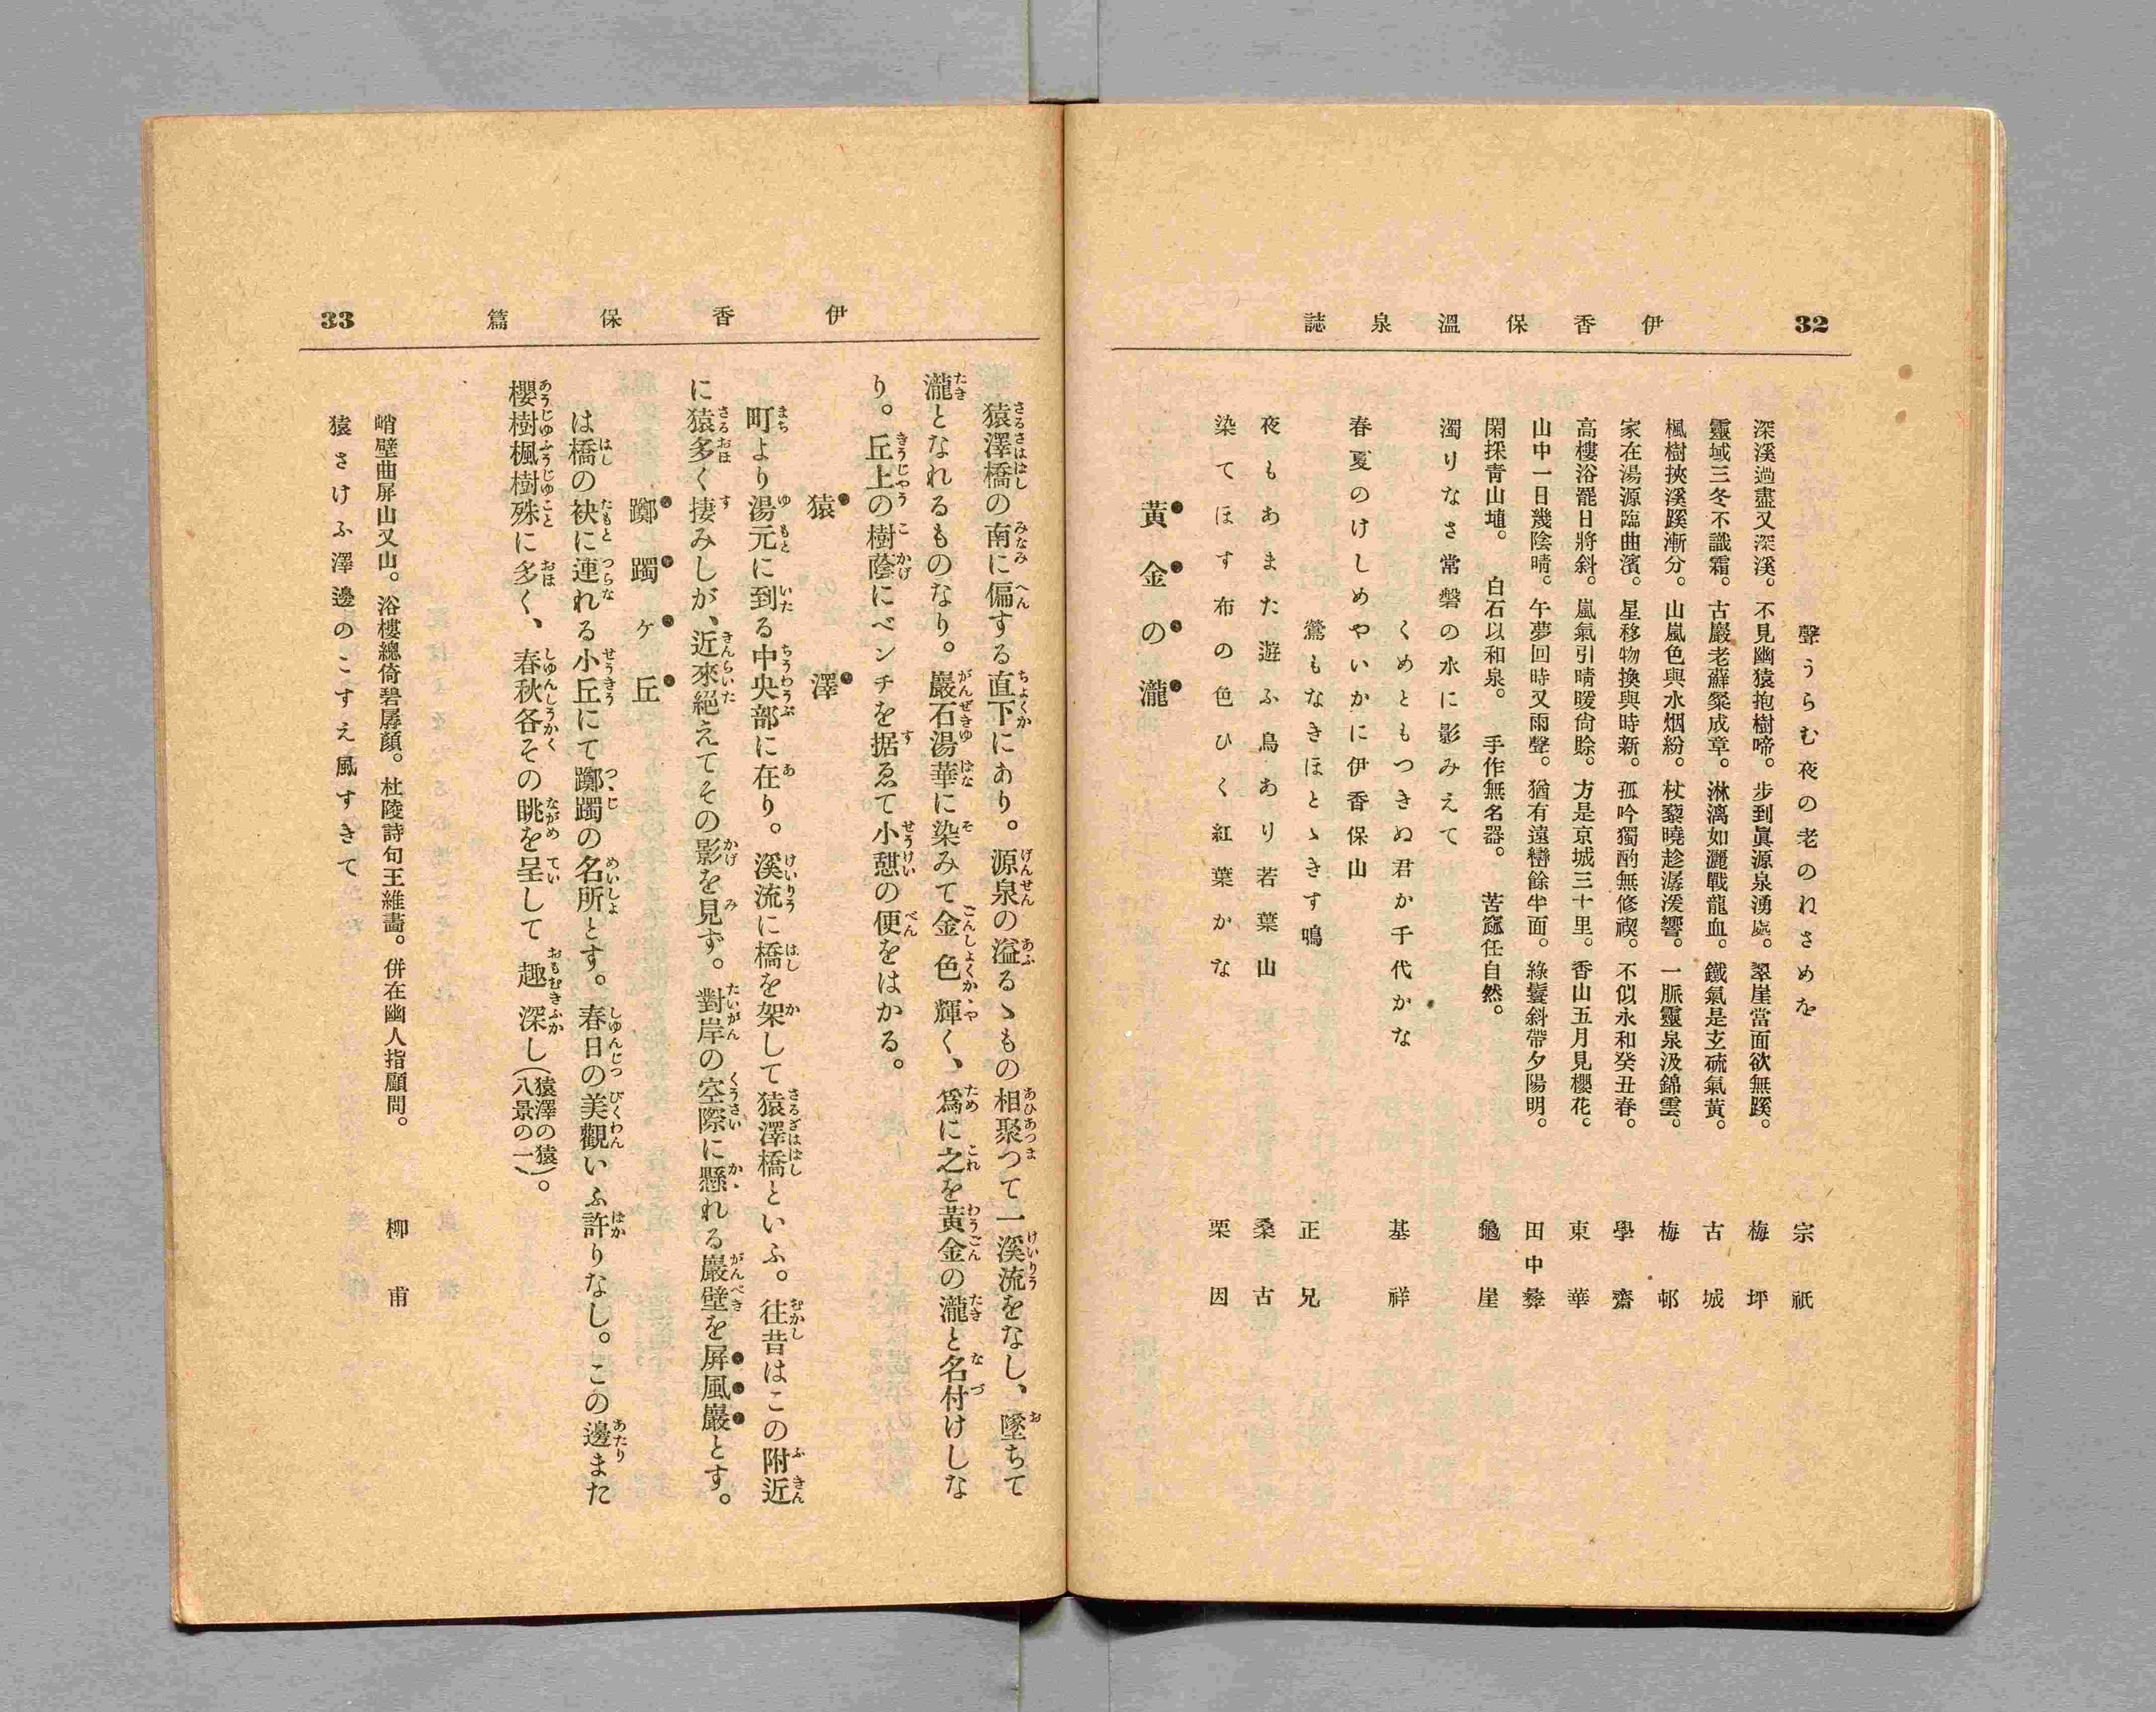 32
伊香保溫泉誌
聲うらむ夜の老のねさめを　宗祇
深溪過盡又深溪。不見幽猿抱樹啼。步到眞源泉湧處。翠崖當面欲無蹊。　梅坪
靈域三冬不識霜。古巖老蘚粲成章。淋漓如灑戰龍血。鐵氣是玄硫氣黃。　古城
楓樹挾溪蹊漸分。山嵐色與水烟紛。杖藜曉趁潺湲響。一脈靈泉汲錦雲。　梅邨
家在湯源臨曲濱。星移物換與時新。孤吟獨酌無修禊。不似永和癸丑春。　學齋
高樓浴罷日將斜。嵐氣引晴暖尙賖。方是京城三十里。香山五月見櫻花。　東華
山中一日幾陰晴。午夢回時又雨聲。猶有遠巒餘半面。綠鬟斜帶夕陽明。　田中彝
閑採靑山埴。　白石以和泉。　手作無名器。　苦窳任自然。　龜崖
濁りなき常磐の水に影みえて
くめともつきぬ君か千代かな　基祥
春夏のけしめやいかに伊香保山
鶯もなきほとゝきす鳴　正兄
夜もあまた遊ふ鳥あり若葉山　桑古
染てほす布の色ひく紅葉かな　栗因
黃金の瀧
伊香保篇
33
猿澤橋の南に偏する直下にあり。源泉の溢るゝもの相聚つて一溪流をなし、墜ちて
瀧となれるものなり。巖石湯華に染みて金色輝く、爲に之を黃金の瀧と名付けしな
り。丘上の樹蔭にベンチを据ゑて小憩の便をはかる。
猿澤
町より湯元に到る中央部に在り。溪流に橋を架して猿澤橋といふ。往昔はこの附近
に猿多く棲みしが、近來絕えてその影を見ず。對岸の空際に懸れる巖壁を屏風巖とす。
躑躅ヶ丘
は橋の袂に連れる小丘にて躑躅の名所とす。春日の美觀いふ許りなし。この邊また
櫻樹楓樹殊に多く、春秋各その眺を呈して趣深し(猿澤の猿八景の一)。
峭壁曲屏山又山。浴樓總倚碧孱顏。杜陵詩句王維畵。併在幽人指顧間。　柳甫
猿さけふ澤邊のこすえ風すきて